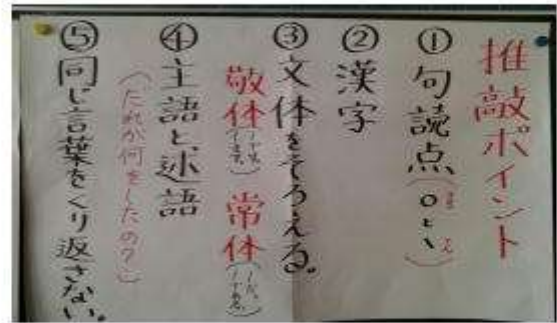 推敲ポイント
①句読点(。と、)
②漢字
③文体をそろえる。
敬体 常体
④主語と述語
(だれが何をしたの?)
⑤同じ言葉をくり返さない。